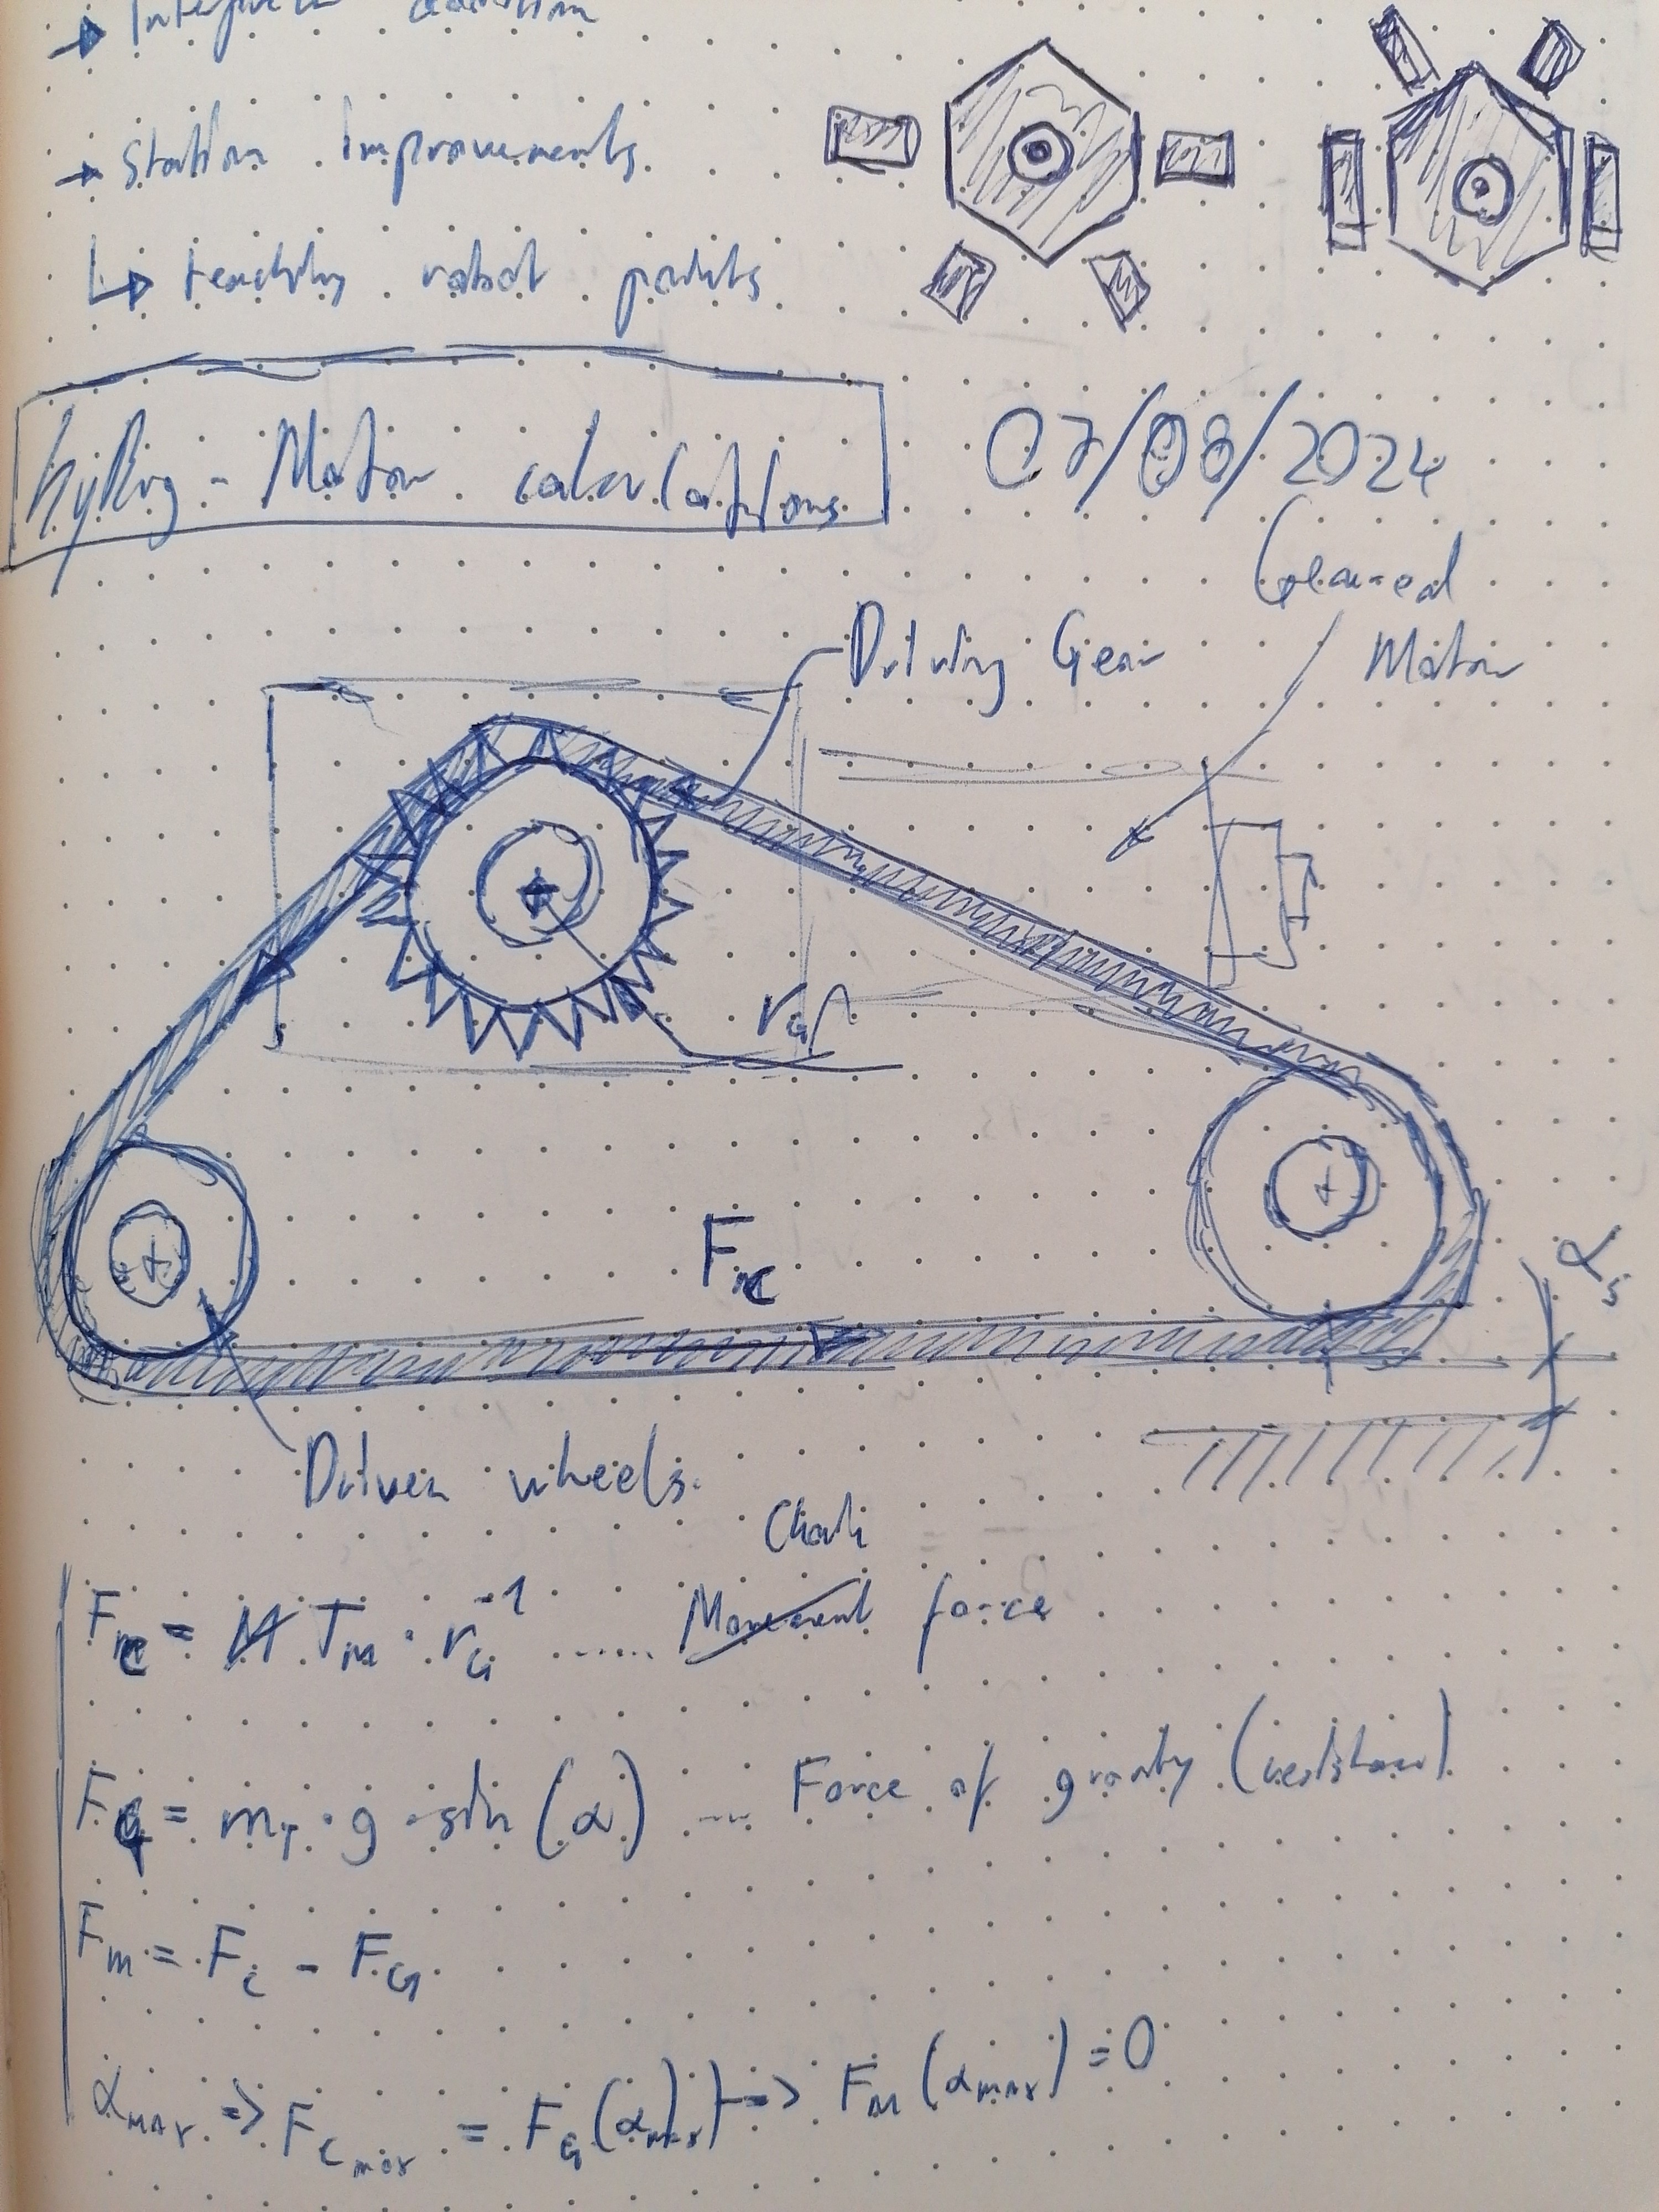 → Station Improvements
↳ teaching robot points
hyRvg - Motor calculations
07/08/2024
Geared
Motor
Driving Gear
r_G
F_C
α_s
Driven wheels
Chain
F_C = T_M · r_G^-1 ...... Movement force
F_G = m_T · g · sin (α) ... Force of gravity (resistance)
F_M = F_C - F_G
α_max => F_C_max = F_G (α_max) => F_M (α_max) = 0